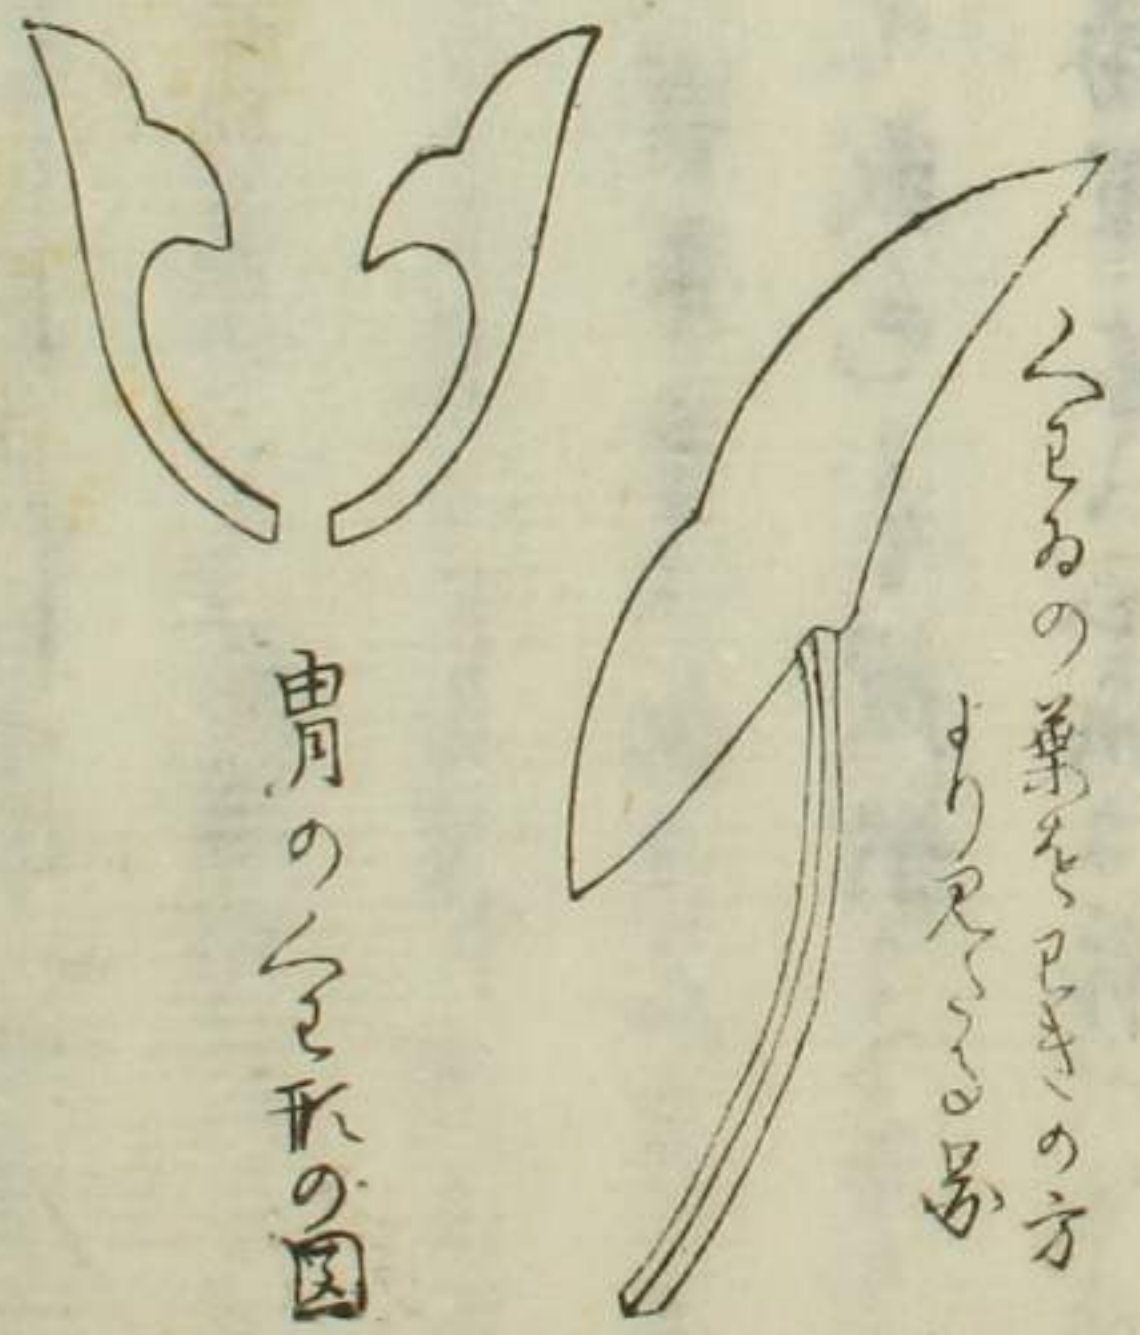 くわゐの葉をわきの方
より見たる図
冑のくわ形の図